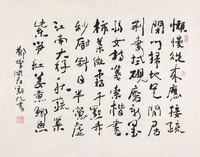 懶慢從來應接疏
閉門掃地足閒居
荊妻試硯磨新墨弱
女持箋索楷書
柿葉微霜千點赤
紗廚斜日半窗虛
江南大好秋蔬菜
紫筍紅薑煮鯽魚
鄭燮閒居